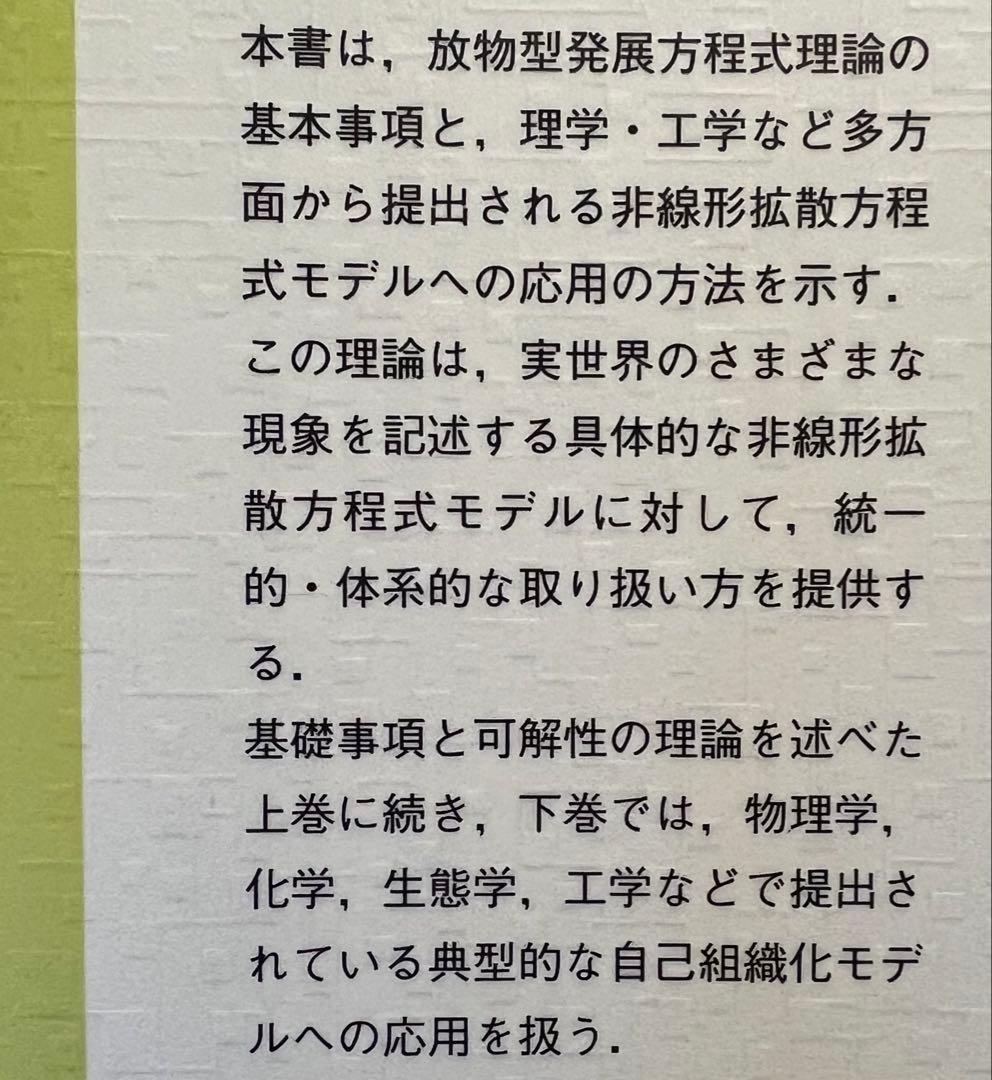 本書は，放物型発展方程式理論の
基本事項と，理学・工学など多方
面から提出される非線形拡散方程
式モデルへの応用の方法を示す．
この理論は，実世界のさまざまな
現象を記述する具体的な非線形拡
散方程式モデルに対して，統一
的・体系的な取り扱い方を提供す
る．
基礎事項と可解性の理論を述べた
上巻に続き，下巻では，物理学，
化学，生態学，工学などで提出さ
れている典型的な自己組織化モデ
ルへの応用を扱う．